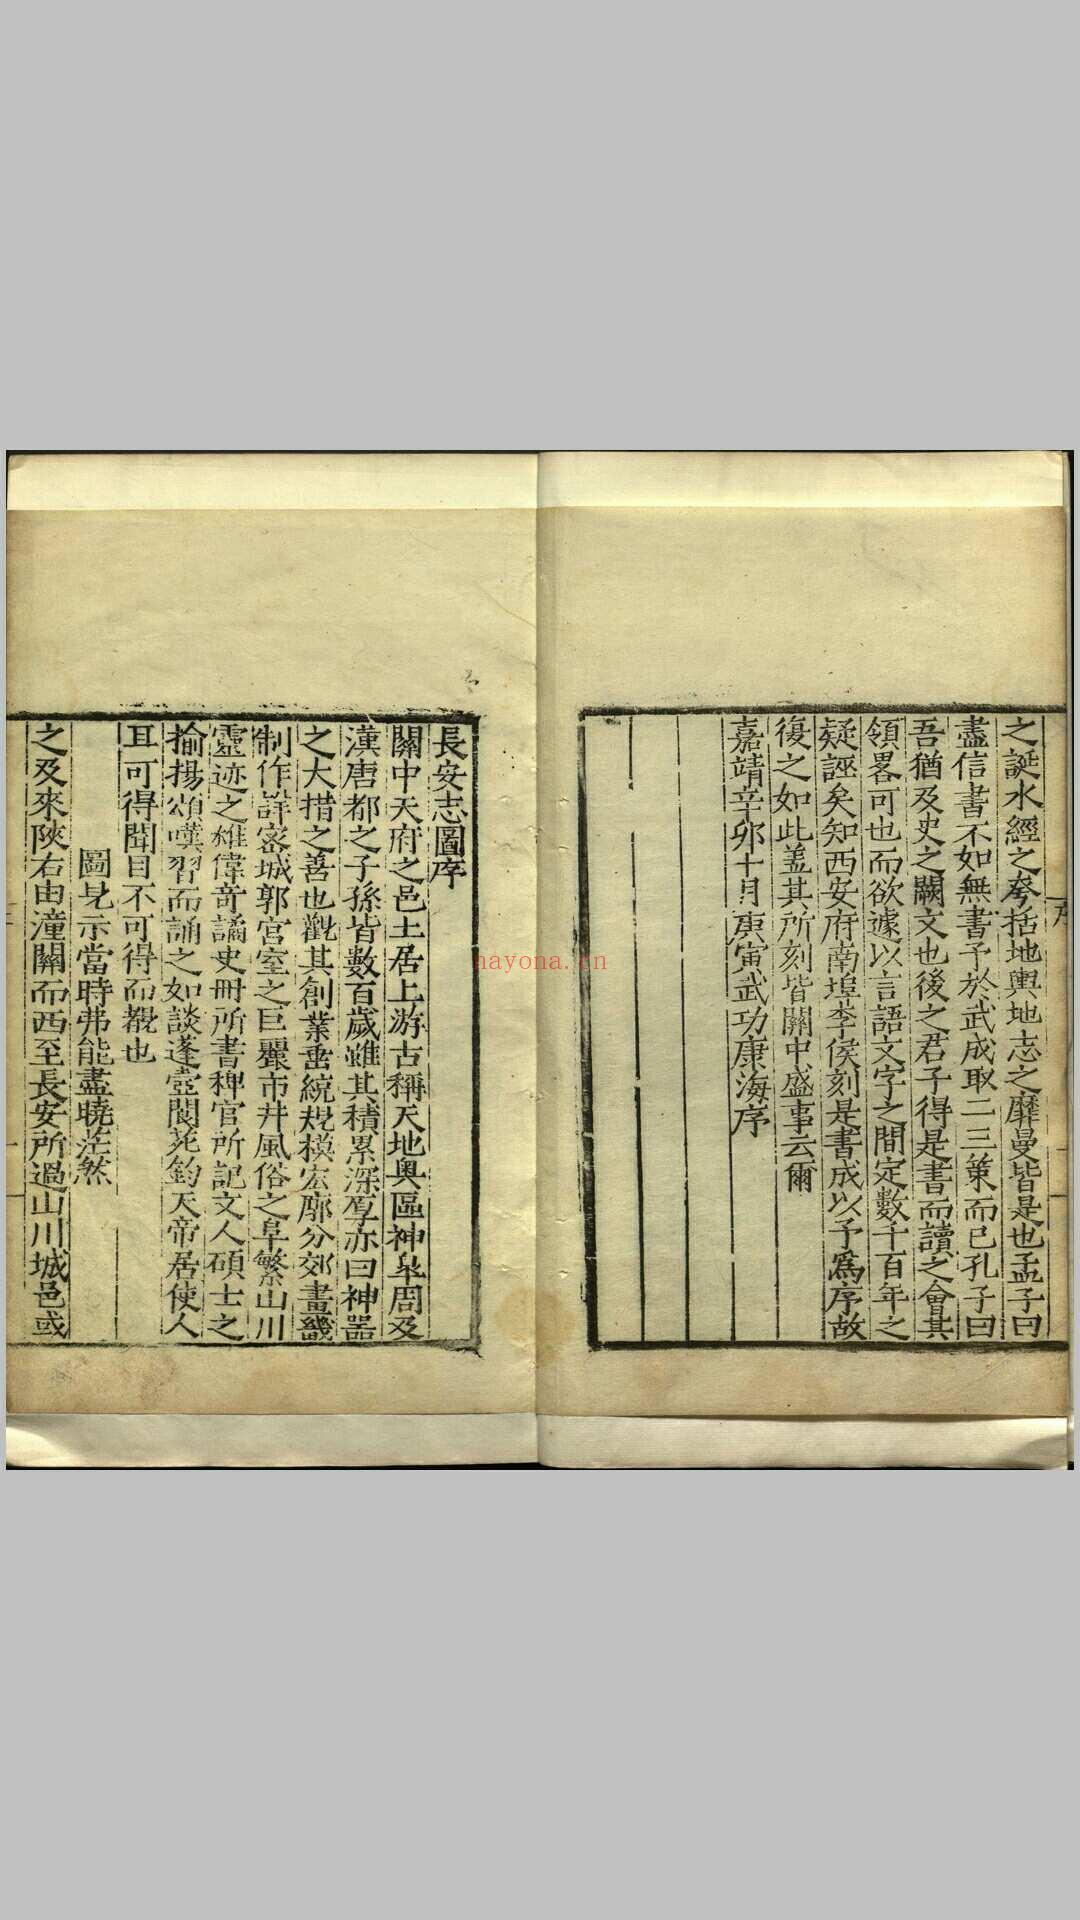 之誕水經之夸括地輿地志之靡曼皆是也孟子曰
盡信書不如無書予於武成取二三策而已孔子曰
吾猶及史之闕文也後之君子得是書而讀之會其
領畧可也而欲遽以言語文字之間定數千百年之
疑誣矣知西安府南埠李侯刻是書成以予爲序故
復之如此蓋其所刻皆關中盛事云爾
嘉靖辛卯十月庚寅武功康海序
長安志圖序
關中天府之邑土居上游古稱天地奥區神臯周及
漢唐都之子孫皆數百歲雖其積累深厚亦曰神器
之大措之善也觀其創業垂統規模宏廓分郊畫畿
制作詳密城郭宮室之巨麗市井風俗之阜繁山川
靈迹之雄偉竒譎史冊所書稗官所記文人碩士之
揄揚頌嘆習而誦之如談蓬壺閬苑鈞天帝居使人
耳可得聞目不可得而覩也
圖見示當時弗能盡曉茫然
之及來陜右由潼關而西至長安所過山川城邑或
nayona.cn